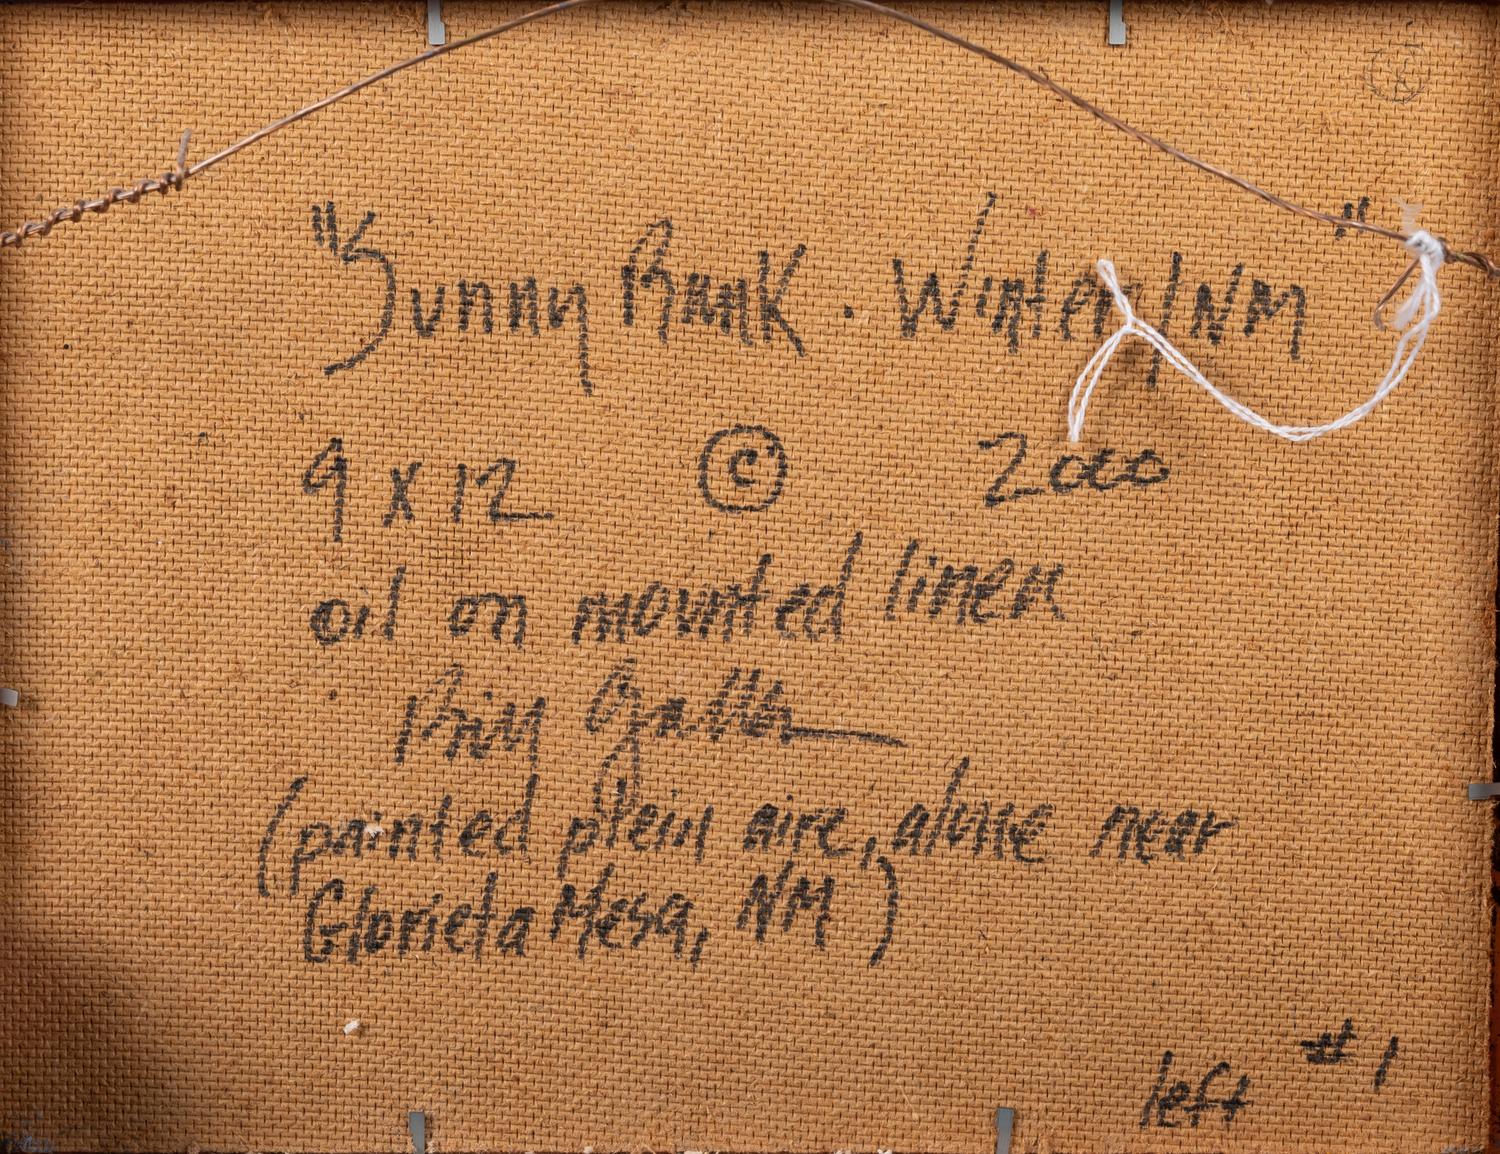 "Sunny Bank · Winter/NM"
9 x 12 © 2000
oil on mounted linen
Bill Gallen
(painted plein aire, alone near
Glorieta Mesa, NM)
#1
left